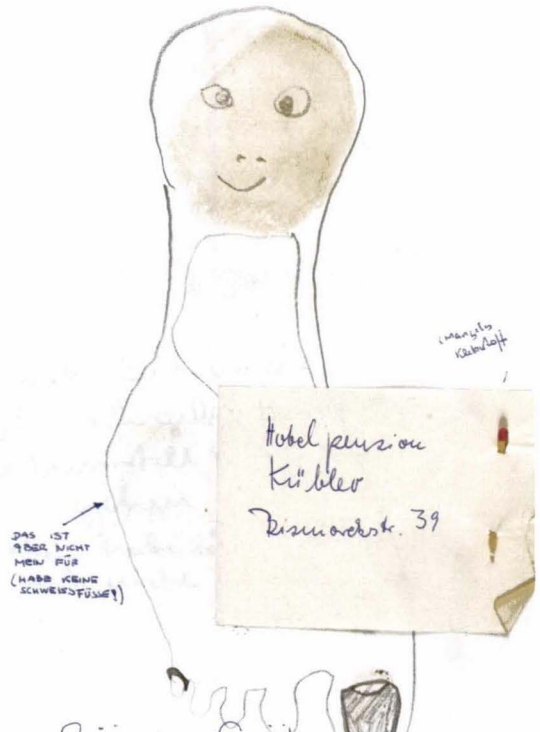 (mangels
Klebstoff
Hotelpension
Kübler
Bismarckstr. 39
DAS IST
ABER NICHT
MEIN FUß
(HABE KEINE
SCHWEISSFÜSSE!)